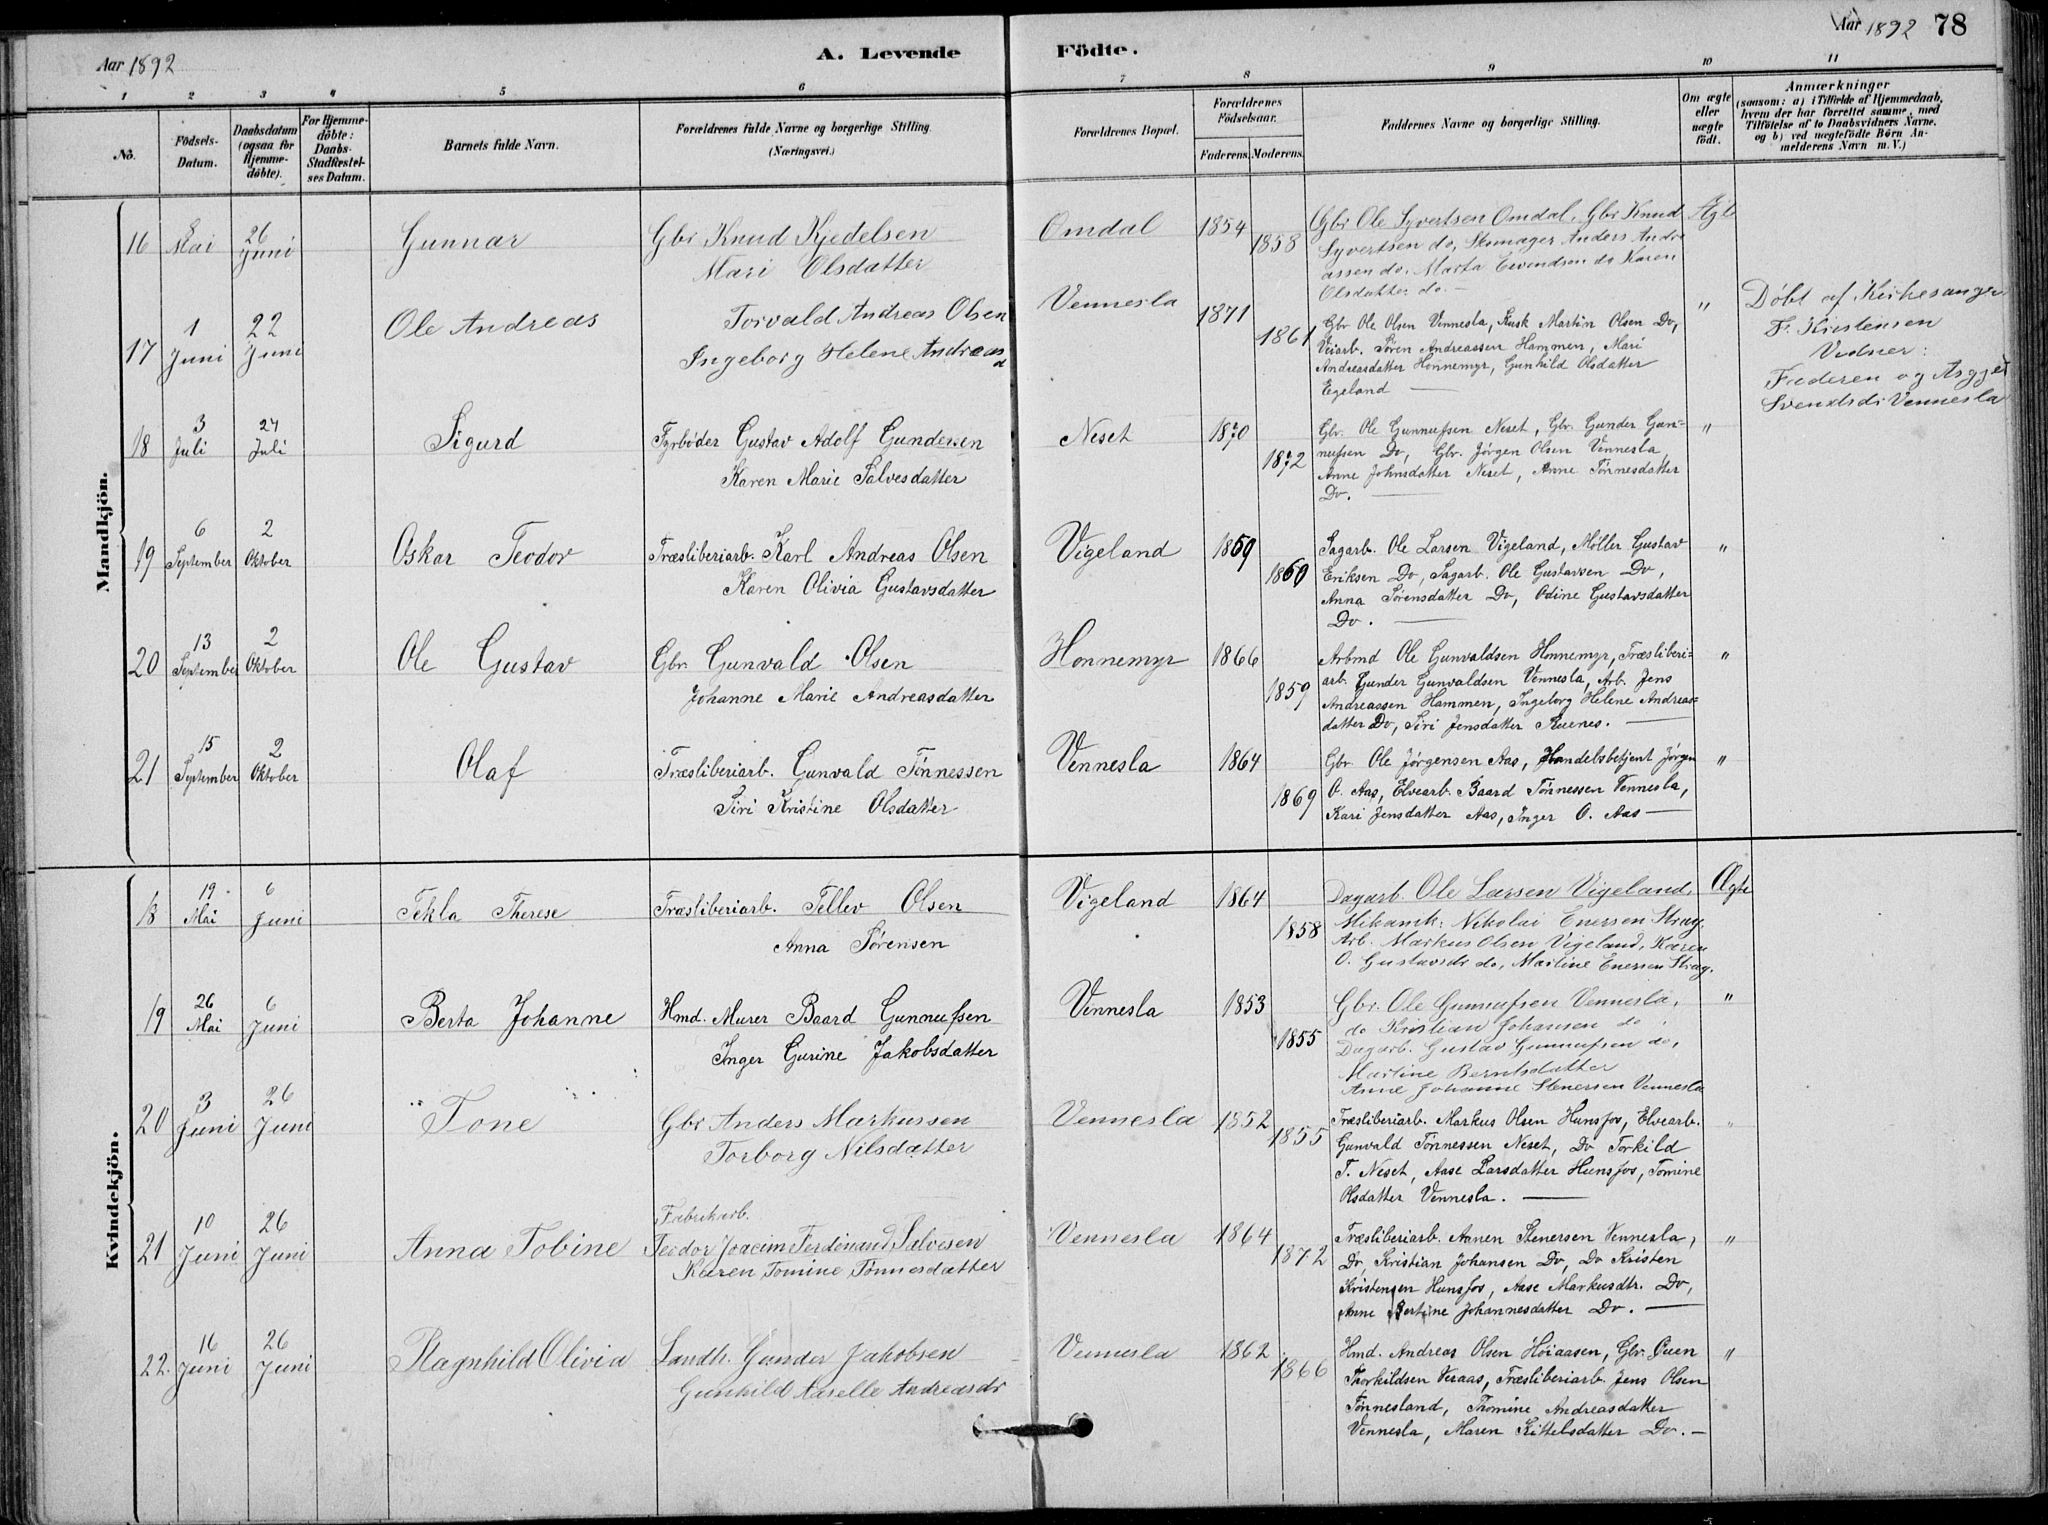 Aar 1892 A. Levende Födte. Aar 1892 78
1 2 3 4 5 6 7 8 9 10 11
No. Födsels-Datum. Daabsdatum (ogsaa for Hjemme-döbte). For Hjemme-döbte: Daabs-Stadfæstel-ses Datum. Barnets fulde Navn. Forældrenes fulde Navne og borgerlige Stilling. (Næringsvei.) Forældrenes Bopæl. Forældrenes Födselsaar. Faderens. Moderens. Faddernes Navne og borgerlige Stilling. Om ægte eller uægte födt. Anmærkninger (saasom: a) i Tilfælde af Hjemmedaab, hvem der har forrettet samme, med Tilföielse af to Daabsvidners Navne, og b) ved uægtefödte Börn An-melderens Navn m. V.)
Mandkjön.
16 Mai 26 Juni Gunnar Gbr Knud Kjedelsen Omdal 1854 Gbr Ole Syvertsen Omdal, Gbr Knud Ægte
Mari Olsdatter 1858 Syvertsen do, Skomager Anders Andre
assen do. Marta Eivendsen do Karen
Olsdatter do. —
17 1 Juni 22 Juni Ole Andreas Torvald Andreas Olsen Vennesla 1871 Gbr Ole Olsen Vennesla, Husk Martin Olsen Do, " Döbt af Kirkesanger
Ingeborg Helene Andreas d 1861 Veiarb. Sören Andreassen Hammen, Mari F. Kristensen
Andreasdatter Honnemyr, Gunhild Olsdatter Vidner:
Egeland — Faderen og
Svendsd. Vennesla
18 3 Juli 24 Juli Sigurd Fyrböder Gustav Adolf Gundersen Neset 1870 Gbr. Ole Gunnufsen Neset, Gbr. Gunder Gun- "
Karen Marie Salvesdatter 1872 nufsen Do, Gbr. Jörgen Olsen Vennesla,
Anne Johnsdatter Neset, Anne Tönnesdatter
Do. —
19 6 September 2 Oktober Oskar Teodor Træsliberiarb. Karl Andreas Olsen Vigeland 1859 Sagarb. Ole Larsen Vigeland, Möller Gustav "
Karen Olivia Gustavsdatter 1860 Eriksen Do, Sagarb. Ole Gustavsen Do,
Anna Sörensdatter Do, Odine Gustavsdatter
Do. —
20 13 September 2 Oktober Ole Gustav Gbr. Gunvald Olsen Honnemyr 1866 Arbmd Ole Gunvaldsen Honnemyr, Træsliberi= "
Johanne Marie Andreasdatter 1859 arb. Gunder Gunvaldsen Vennesla, Arb. Jens
Andreassen Hammen, Ingeborg Helene Andreas=
datter Do, Siri Jensdatter Ruenes. —
21 15 September 2 Oktober Olaf Træsliberiarb. Gunvald Tönnessen Vennesla 1864 Gbr. Ole Jörgensen Aas, Handelsbetjent Jörgen "
Siri Kristine Olsdatter 1869 O. Aas, Elvearb. Baard Tönnessen Vennesla,
Kari Jensdatter Aas, Inger O. Aas —
Kvindekjön.
18 19 Mai 6 Juni Tekla Therese Træsliberiarb. Tellev Olsen Vigeland 1864 Dagarb. Ole Larsen Vigeland, Ægte
Anna Sörensen 1858 Mikanik: Nikolai Enersen Stray,
Arb. Markus Olsen Vigeland, Karen
O. Gustavsdr do, Martine Enersen Stray.
19 26 Mai 6 Juni Berta Johanne Hmd. Murer Baard Gunnufsen Vennesla 1853 Gbr. Ole Gunnufsen Vennesla, "
Inger Gurine Jakobsdatter 1855 do Kristian Johansen do,
Dagarb. Gustav Gunnufsen do,
Martine Berntsdatter
Anne Johanne Stenersen Vennesla
20 3 Juni 26 Juni Tone Gbr Anders Markussen Vennesla 1852 Træsliberiarb. Markus Olsen Hunsfos, Elvearb. "
Torborg Nilsdatter 1855 Gunvald Tönnessen Neset, Do Torkild
T. Neset, Aase Larsdatter Hunsfos, Tomine
Olsdatter Vennesla. —
21 10 Juni 26 Juni Anna Tobine Fabrikarb.
Teodor Joacim Ferdinand Salvesen Vennesla 1864 Træsliberiarb. Aanen Stenersen Vennesla, "
Karen Tomine Tönnesdatter 1872 Do, Kristian Johansen Do, Do Kristen
Kristensen Hunsfos, Aase Markusdtr. Do,
Anne Bertine Johannesdatter Do. —
22. 16 Juni 26 Juni Ragnhild Olivia Landh. Gunder Jakobsen Vennesla 1862 Hmd. Andreas Olsen Höiaasen, Gbr. "
Gunhild Andreasdr 1866 Thorkildsen Veraas, Træsliberiarb. Jens Olsen
Tönnesland, Thomine Andreasdatter
Vennesla, Maren Kittelsdatter Do. —